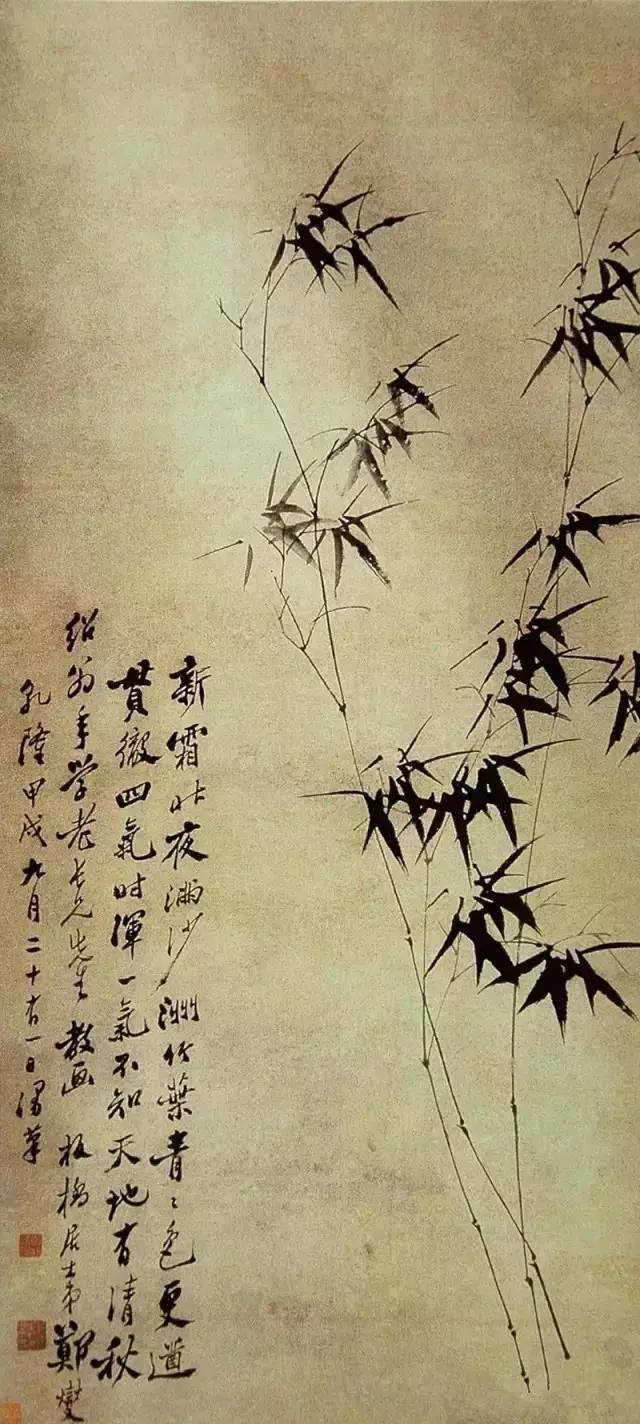 新霜昨夜滿沙洲竹葉青〻色更遒
貫徹四氣时渾一氣不知天地有清秋
紹翁年学老長兄先生 教画 板橋居士弟鄭燮
乹隆甲戌九月二十有一日漫筆